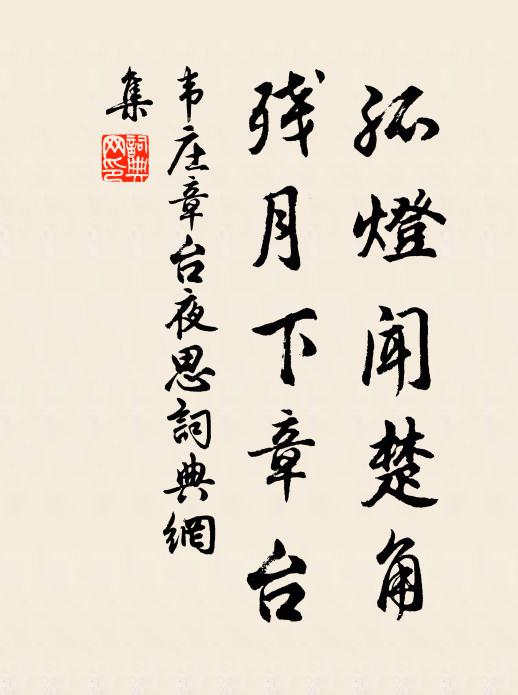 孤燈闻楚角
残月下章台
韦庄章台夜思詞典網
集
詞典網印